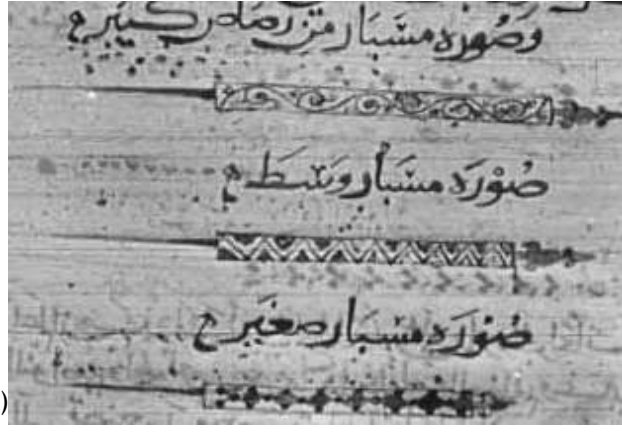 وصُورَة مسْبَار مِن رصَاص كَبِير
صُورَة مسْبَار وَسَط
صُورَة مسْبَار صغَير
)